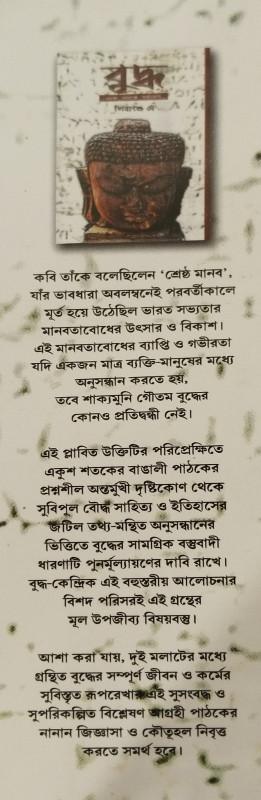 বুদ্ধ
কবি তাঁকে বলেছিলেন ‘শ্রেষ্ঠ মানব’,
যাঁর ভাবধারা অবলম্বনেই পরবর্তীকালে
মূর্ত হয়ে উঠেছিল ভারত সভ্যতার
মানবতাবোধের উৎসার ও বিকাশ।
এই মানবতাবোধের ব্যাপ্তি ও গভীরতা
যদি একজন মাত্র ব্যক্তি-মানুষের মধ্যে
অনুসন্ধান করতে হয়,
তবে শাক্যমুনি গৌতম বুদ্ধের
কোনও প্রতিদ্বন্দ্বী নেই।
এই প্লাবিত উক্তিটির পরিপ্রেক্ষিতে
একুশ শতকের বাঙালী পাঠকের
প্রশ্নশীল অন্তর্মুখী দৃষ্টিকোণ থেকে
সুবিপুল বৌদ্ধ সাহিত্য ও ইতিহাসের
জটিল তথ্য-মন্থিত অনুসন্ধানের
ভিত্তিতে বুদ্ধের সামগ্রিক বস্তুবাদী
ধারণাটি পুনর্মূল্যায়ণের দাবি রাখে।
বুদ্ধ-কেন্দ্রিক এই বহুস্তরীয় আলোচনার
বিশদ পরিসরই এই গ্রন্থের
মূল উপজীব্য বিষয়বস্তু।
আশা করা যায়, দুই মলাটের মধ্যে
গ্রন্থিত বুদ্ধের সম্পূর্ণ জীবন ও কর্মের
সুবিস্তৃত রূপরেখার এই সুসংবদ্ধ ও
সুপরিকল্পিত বিশ্লেষণ আগ্রহী পাঠকের
নানান জিজ্ঞাসা ও কৌতূহল নিবৃত্ত
করতে সমর্থ হবে।